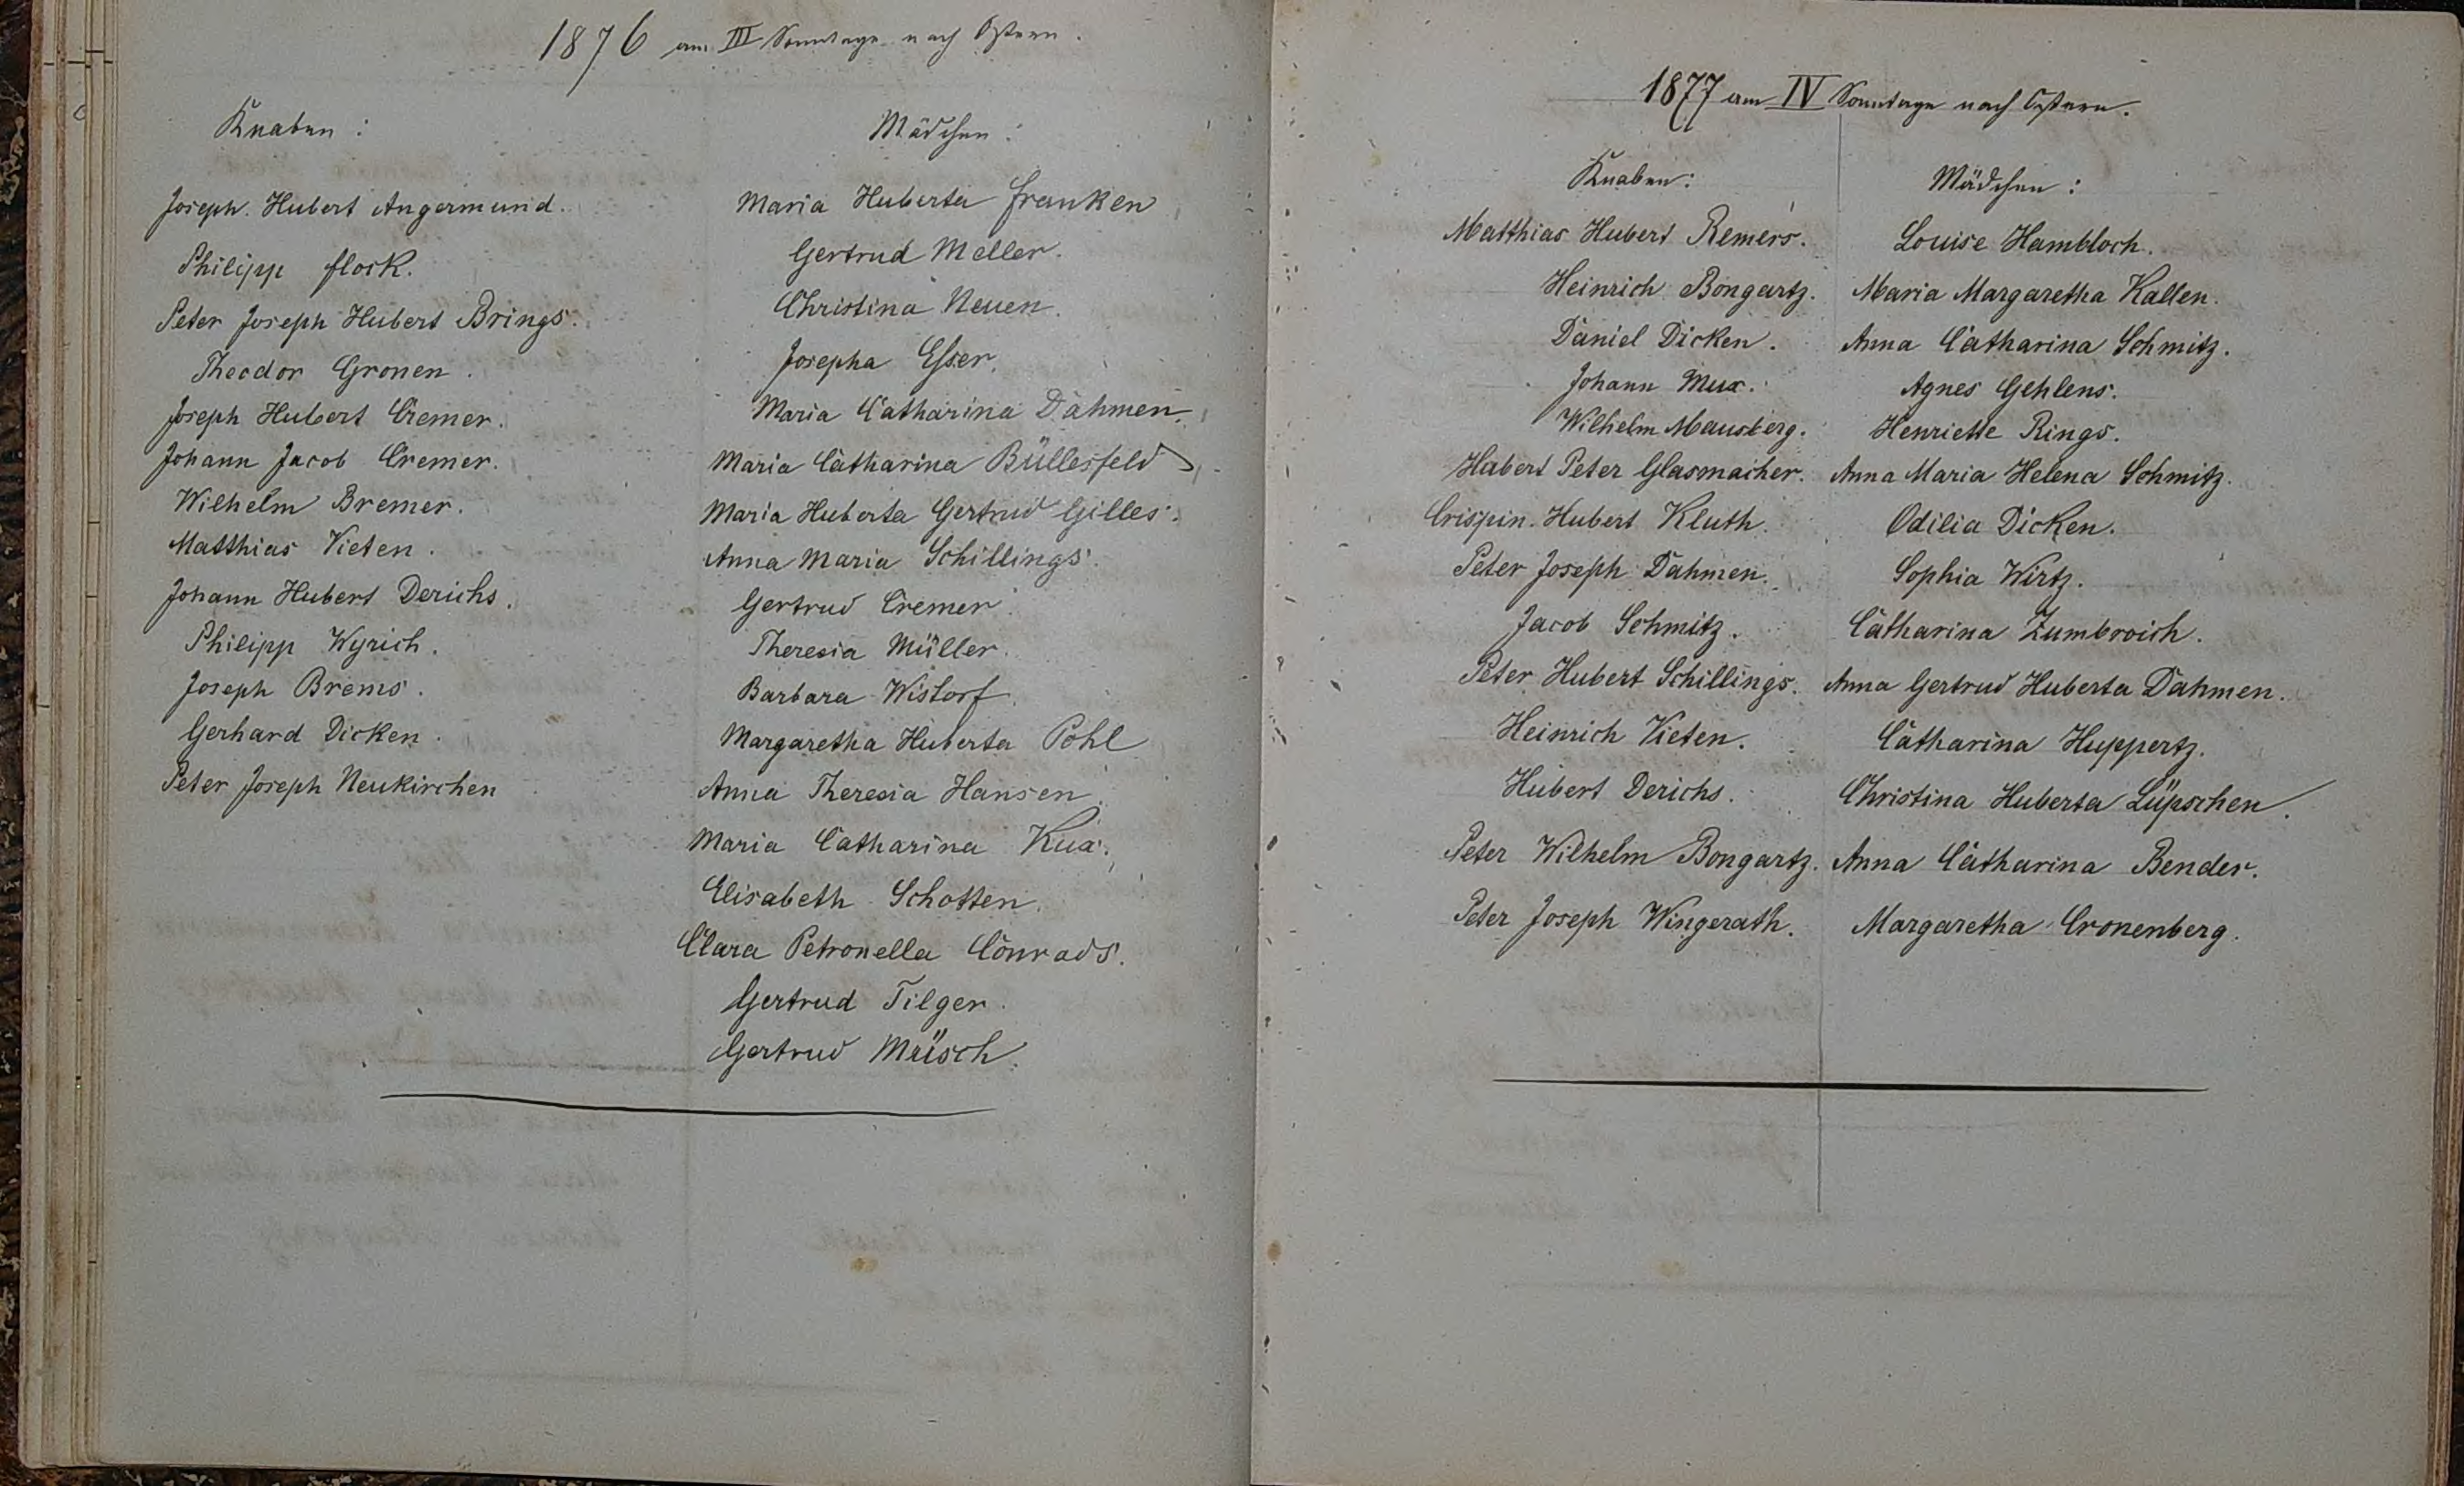 1876 am III Sonntage nach Ostern.
Knaben:
Joseph. Hubert Angermund.
Philipp Flock.
Peter Joseph Hubert Brings.
Theodor Gronen.
Joseph Hubert Cremer.
Johann Jacob Cremer.
Wilhelm Bremer.
Matthias Vieten.
Johann Hubert Derichs.
Philipp Wyrich.
Joseph Brems.
Gerhard Dicken.
Peter Joseph Neukirchen
Mädchen:
Maria Huberta Franken
Gertrud Meller.
Christina Neuen.
Josepha Esser.
Maria Catharina Dahmen.
Maria Catharina Büllesfeld
Maria Huberta Gertrud Gilles.
Anna Maria Schillings.
Gertrud Cremer.
Theresia Müller.
Barbara Wistorf.
Margaretha Huberta Pohl
Anna Theresia Hansen.
Maria Catharina Kux.
Elisabeth Schotten.
Clara Petronella Conrads.
Gertrud Tilger.
Gertrud Müsch.
1877 am IV Sonntage nach Ostern.
Knaben:
Matthias Hubert Remers.
Heinrich Bongartz.
Daniel Dicken.
Johann Mux.
Wilhelm Mausberg.
Hubert Peter Glasmacher.
Crispin. Hubert Kluth.
Peter Joseph Dahmen.
Jacob Schmitz.
Peter Hubert Schillings.
Heinrich Vieten.
Hubert Derichs.
Peter Wilhelm Bongartz.
Peter Joseph Wingerath.
Mädchen:
Louise Hambloch.
Maria Margaretha Kallen.
Anna Catharina Schmitz.
Agnes Gehlens.
Henriette Rings.
Anna Maria Helena Schmitz.
Odilia Dicken.
Sophia Wirtz.
Catharina Zumbroich.
Anna Gertrud Huberta Dahmen.
Catharina Huppertz.
Christina Huberta Lüpschen.
Anna Catharina Bender.
Margaretha Cronenberg.